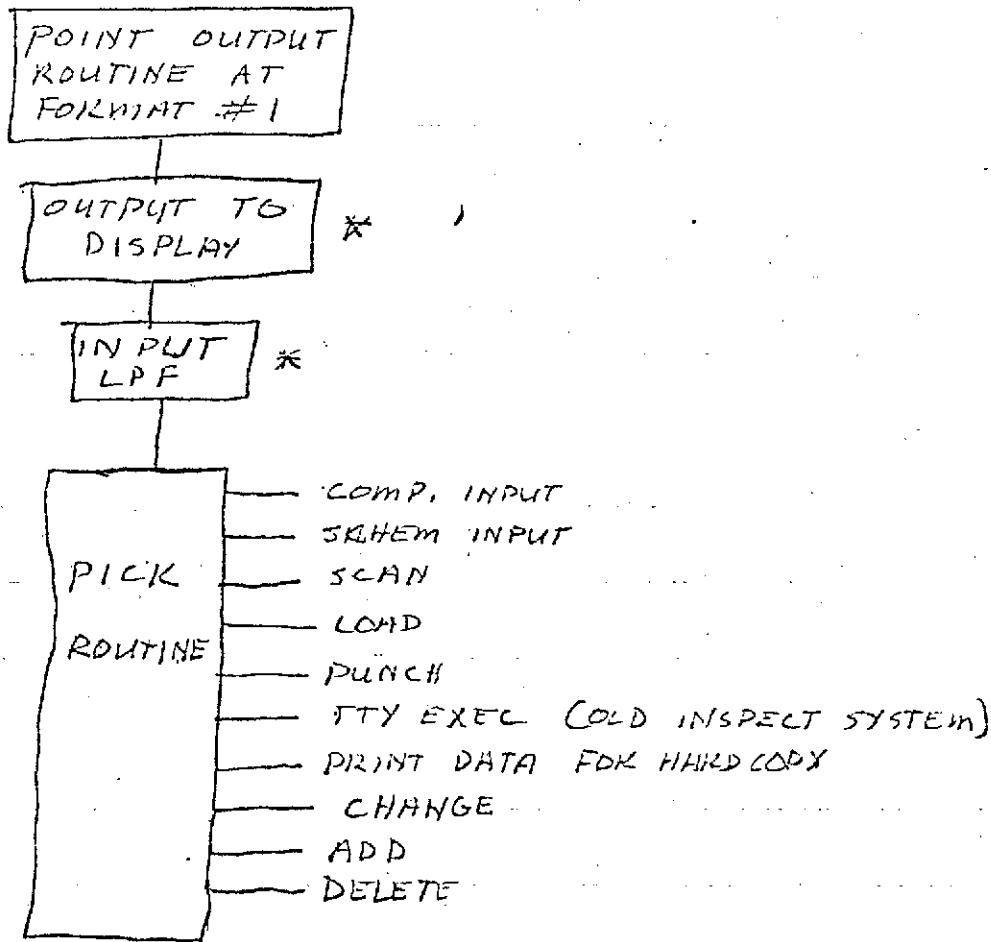 POINT OUTPUT
ROUTINE AT
FORMAT #1
OUTPUT TO
DISPLAY *
INPUT
LPF *
PICK
ROUTINE
COMP. INPUT
SKHEM INPUT
SCAN
LOAD
PUNCH
TTY EXEC (OLD INSPECT SYSTEM)
PRINT DATA FOR HARDCOPY
CHANGE
ADD
DELETE